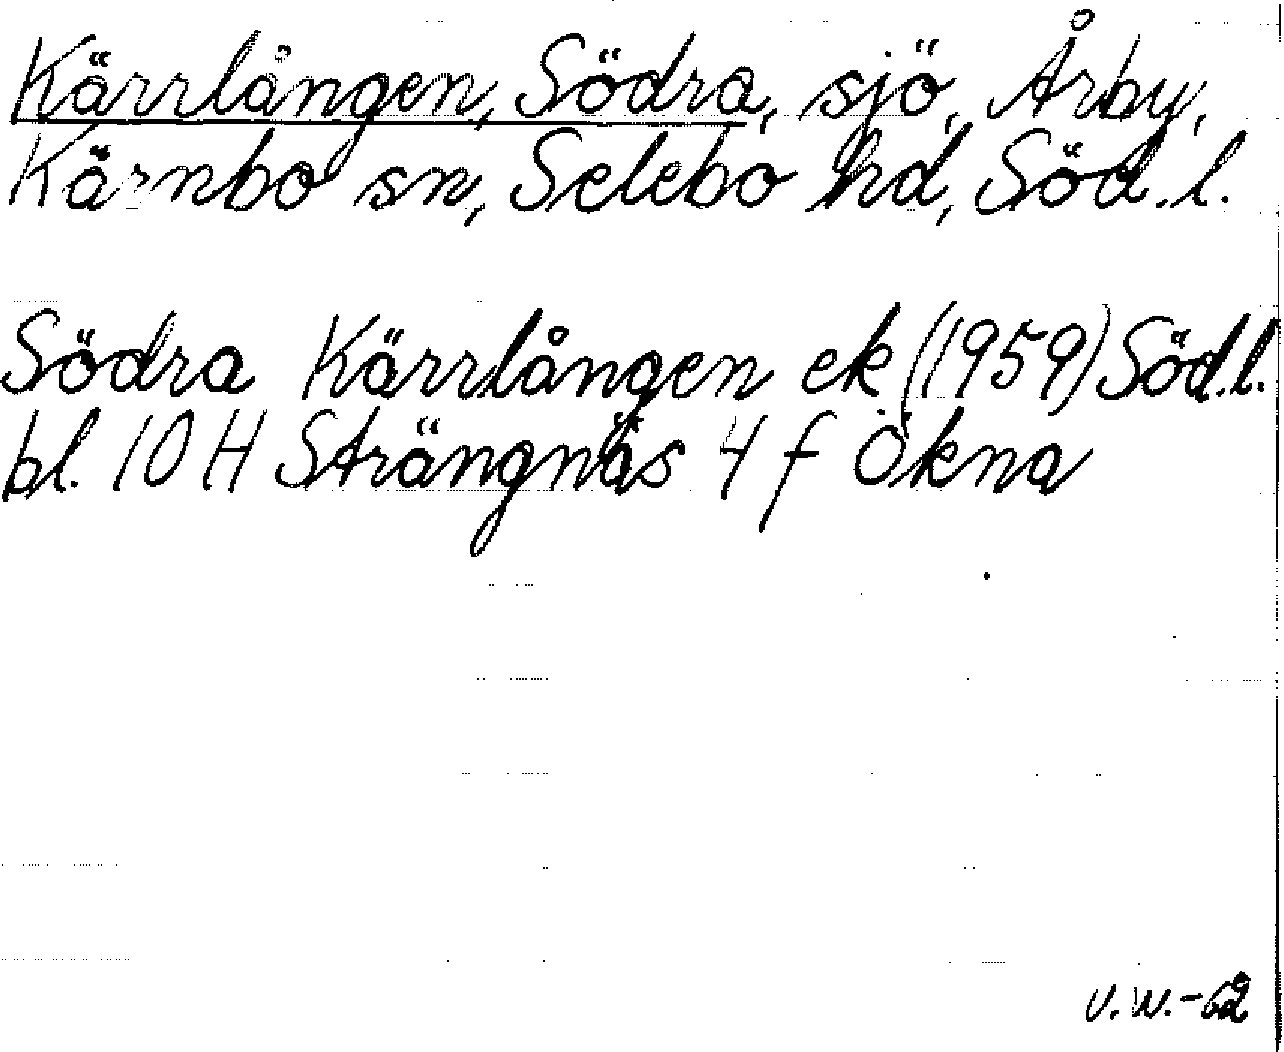 Kärrlången, Södra, sjö, Årby,
Kärnbo sn, Selebo hd, Söd.l.
Södra Kärrlången ek (1959) Söd.l.
bl. 10 H Strängnäs 4 f Ökna
V.W.-62